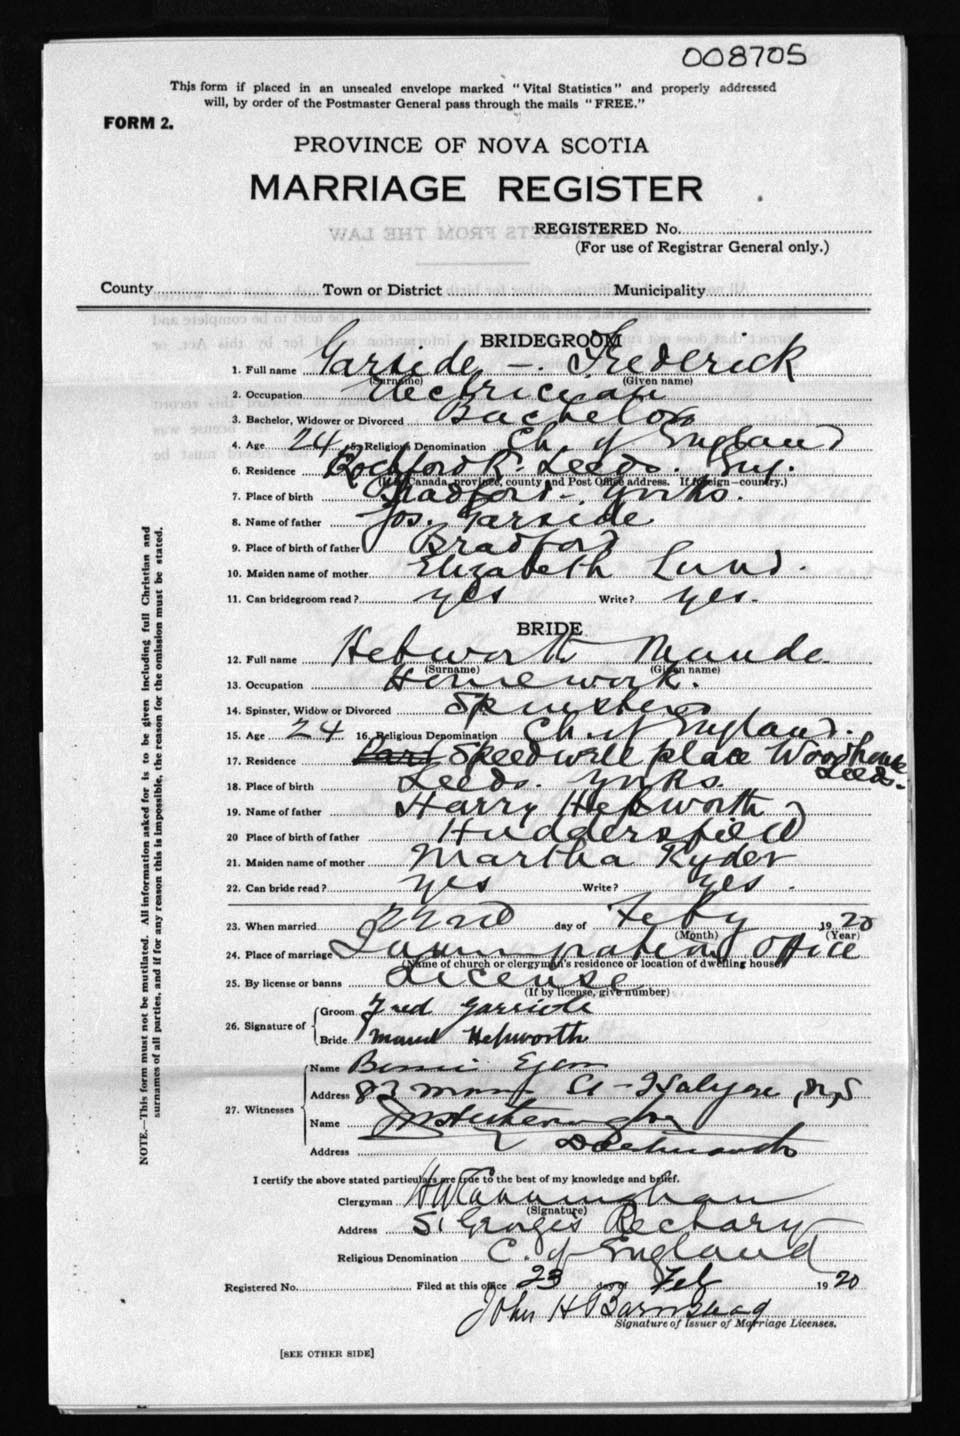 008705
This form if placed in an unsealed envelope marked "Vital Statistics" and properly addressed
will, by order of the Postmaster General pass through the mails "FREE."
FORM 2.
PROVINCE OF NOVA SCOTIA
MARRIAGE REGISTER
REGISTERED No.
(For use of Registrar General only.)
County Town or District Municipality
BRIDEGROOM
1. Full name Garside - Frederick
(Surname) (Given name)
2. Occupation Electrician
3. Bachelor, Widower or Divorced Bachelor
4. Age 24 5. Religious Denomination Ch. of England
6. Residence Leeds. Eng.
(If in Canada, province, county and Post Office address. If foreign—country.)
7. Place of birth Bradford - Yorks.
8. Name of father Jos. Garside
9. Place of birth of father Bradford
10. Maiden name of mother Elizabeth Lund.
11. Can bridegroom read? yes Write? yes.
BRIDE
12. Full name Hebworth Maude
(Surname) (Given name)
13. Occupation Homework.
14. Spinster, Widow or Divorced Spinster
15. Age 24 16. Religious Denomination Ch. of England.
17. Residence Speedwell place Woodhouse
Leeds.
18. Place of birth Leeds. Yorks.
19. Name of father Harry Hepworth
20 Place of birth of father Huddersfield
21. Maiden name of mother Martha Ryder
22. Can bride read? yes Write? yes.
23. When married 22nd day of Feby 1920
(Month) (Year)
24. Place of marriage Immigration Office
(Name of church or clergyman's residence or location of dwelling house)
25. By license or banns License
(If by license, give number)
26. Signature of Groom Fred Garside
Bride Maud Hepworth
27. Witnesses Name Bessie Egan
Address St - Halifax, N.S
Name
Address Dartmouth
I certify the above stated particulars are true to the best of my knowledge and belief.
Clergyman H W Cunningham
(Signature)
Address St Georges Rectory
Religious Denomination C. of England
Registered No. Filed at this office 23 day of Feb 1920
John H Barnstead
Signature of Issuer of Marriage Licenses.
[SEE OTHER SIDE]
NOTE.—This form must not be mutilated. All information asked for is to be given including full Christian and
surnames of all parties, and if for any reason this is impossible, the reason for the omission must be stated.